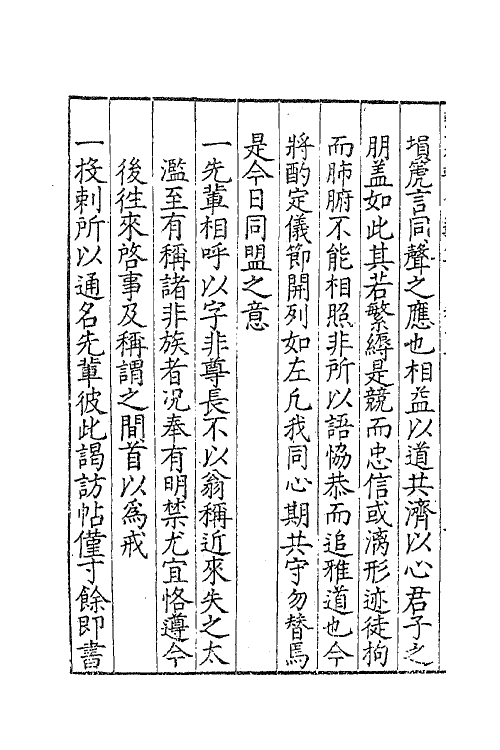 塤篪言同聲之應也相益以道共濟以心君子之
朋盖如此其若繁縟是競而忠信或漓形迹徒拘
而肺腑不能相照非所以語恊恭而追雅道也今
將酌定儀節開列如左凢我同心期共守勿替焉
是今日同盟之意
一先輩相呼以字非尊長不以翁稱近來失之太
濫至有稱諸非族者况奉有明禁尤宜恪遵今
後徃來啓事及稱謂之間首以爲戒
一投刺所以通名先輩彼此謁訪帖僅寸餘即書